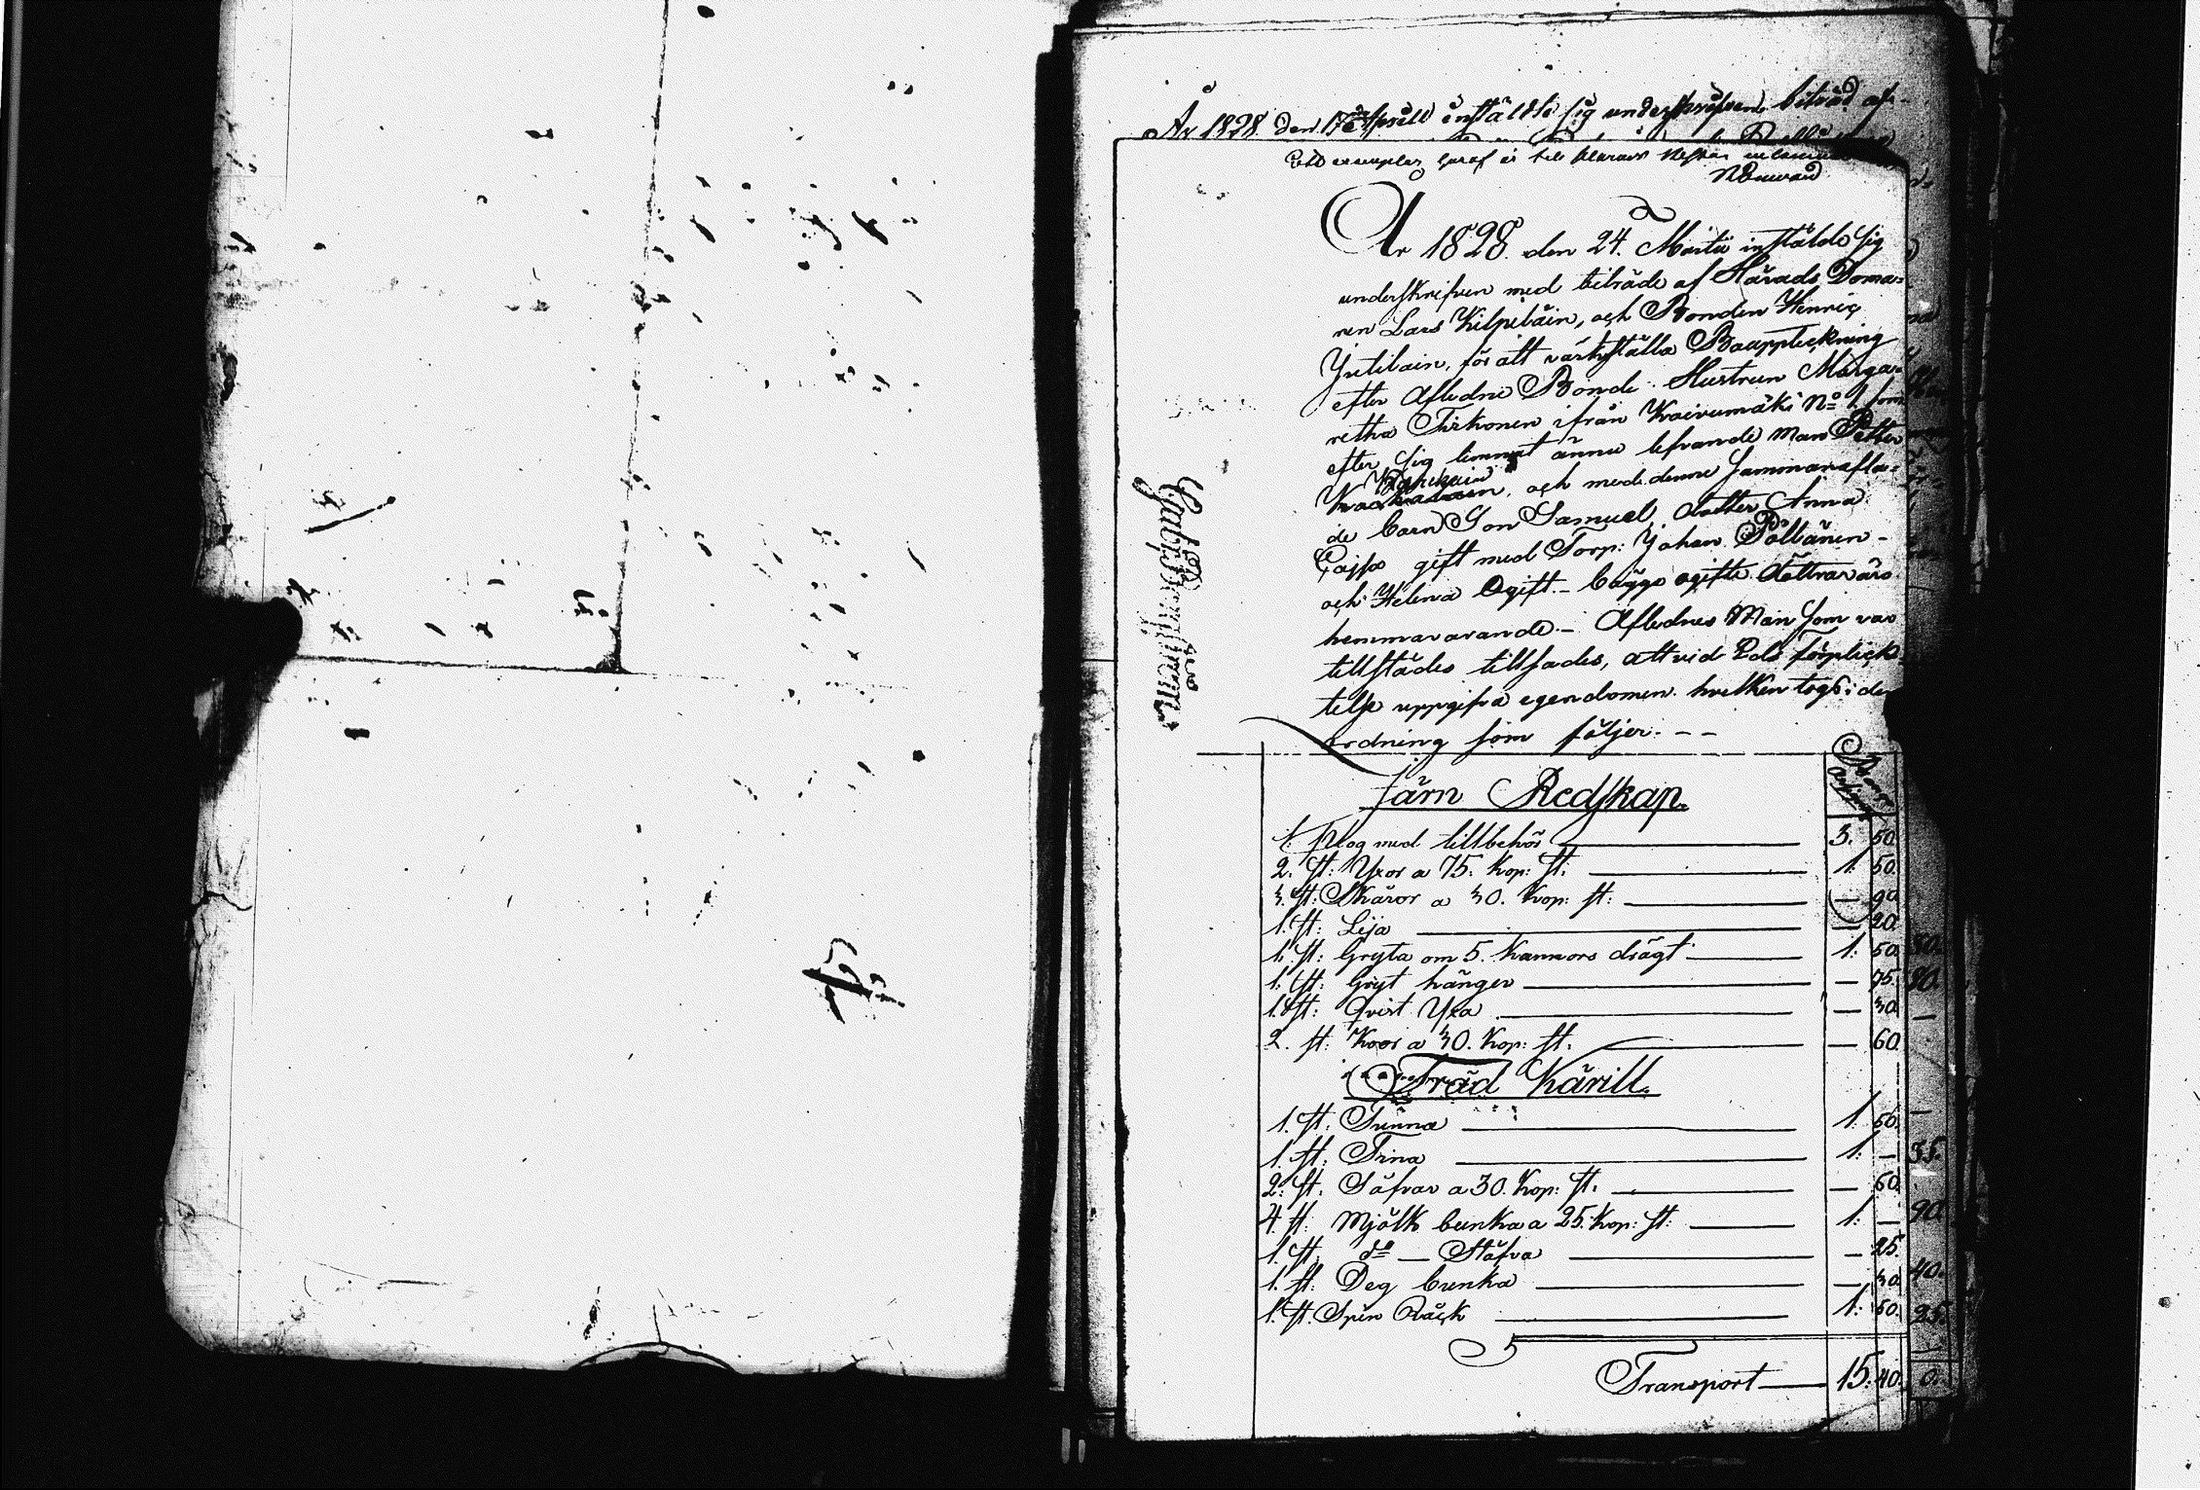 År 1828 den 17de Aprill instälde sig underskrifven, biträd af
Ett exemplar häraf är till
År 1828. den 24. Martii instälde sig
underskrifven med biträde af Härads Doma-
ren Lars Kilpiläin, och Bonden Henric
för att värkställa Bouppteckning
efter Aflednе Bonde Hustrun Marga-
retha Tirkonen ifrån Koivumäki No 9 som
efter sig lemnat ännu lefvande Man Petter
och med denne sammanafla-
de barn Son Samuel, dotter Anna
Cajsa gift med Torp: Johan Pöllänen -
och Helena Ogift - bägge ogifte döttrar äro
hemmavarande - Aflednes Man som var
tillstädes tillsades, att vid Eds Förplick-
telse uppgifva egendomen hvilken togs i den
ordning som följer. - -
Järn Redskap.
1. Plog med tillbehör 3. 50.
2. st: Yxor a 75. Kop: st. 1. 50.
3. st: Skäror a 30. Kop: st: — 90.
1. st: Lija — 20.
1. st: Gryta om 5. Kannors drägt 1. 50.
1. st: Gryt hänger — 75.
1. st: Qvist Yxa — 30.
2. st: Koor a 30. Kop: st. — 60.
Träd Kärill.
1. st: Tunna 1. 50.
1. st: Tina 1. —
2. st. Såfvar a 30. Kop: st. — 60.
4 st: Mjölk bunka a 25. Kop: st: 1. —
1. st. do — Stäfva — 25.
1. st: Deg bunka — 30.
1. st. Spin Råck 1. 50.
Transport 15. 40.